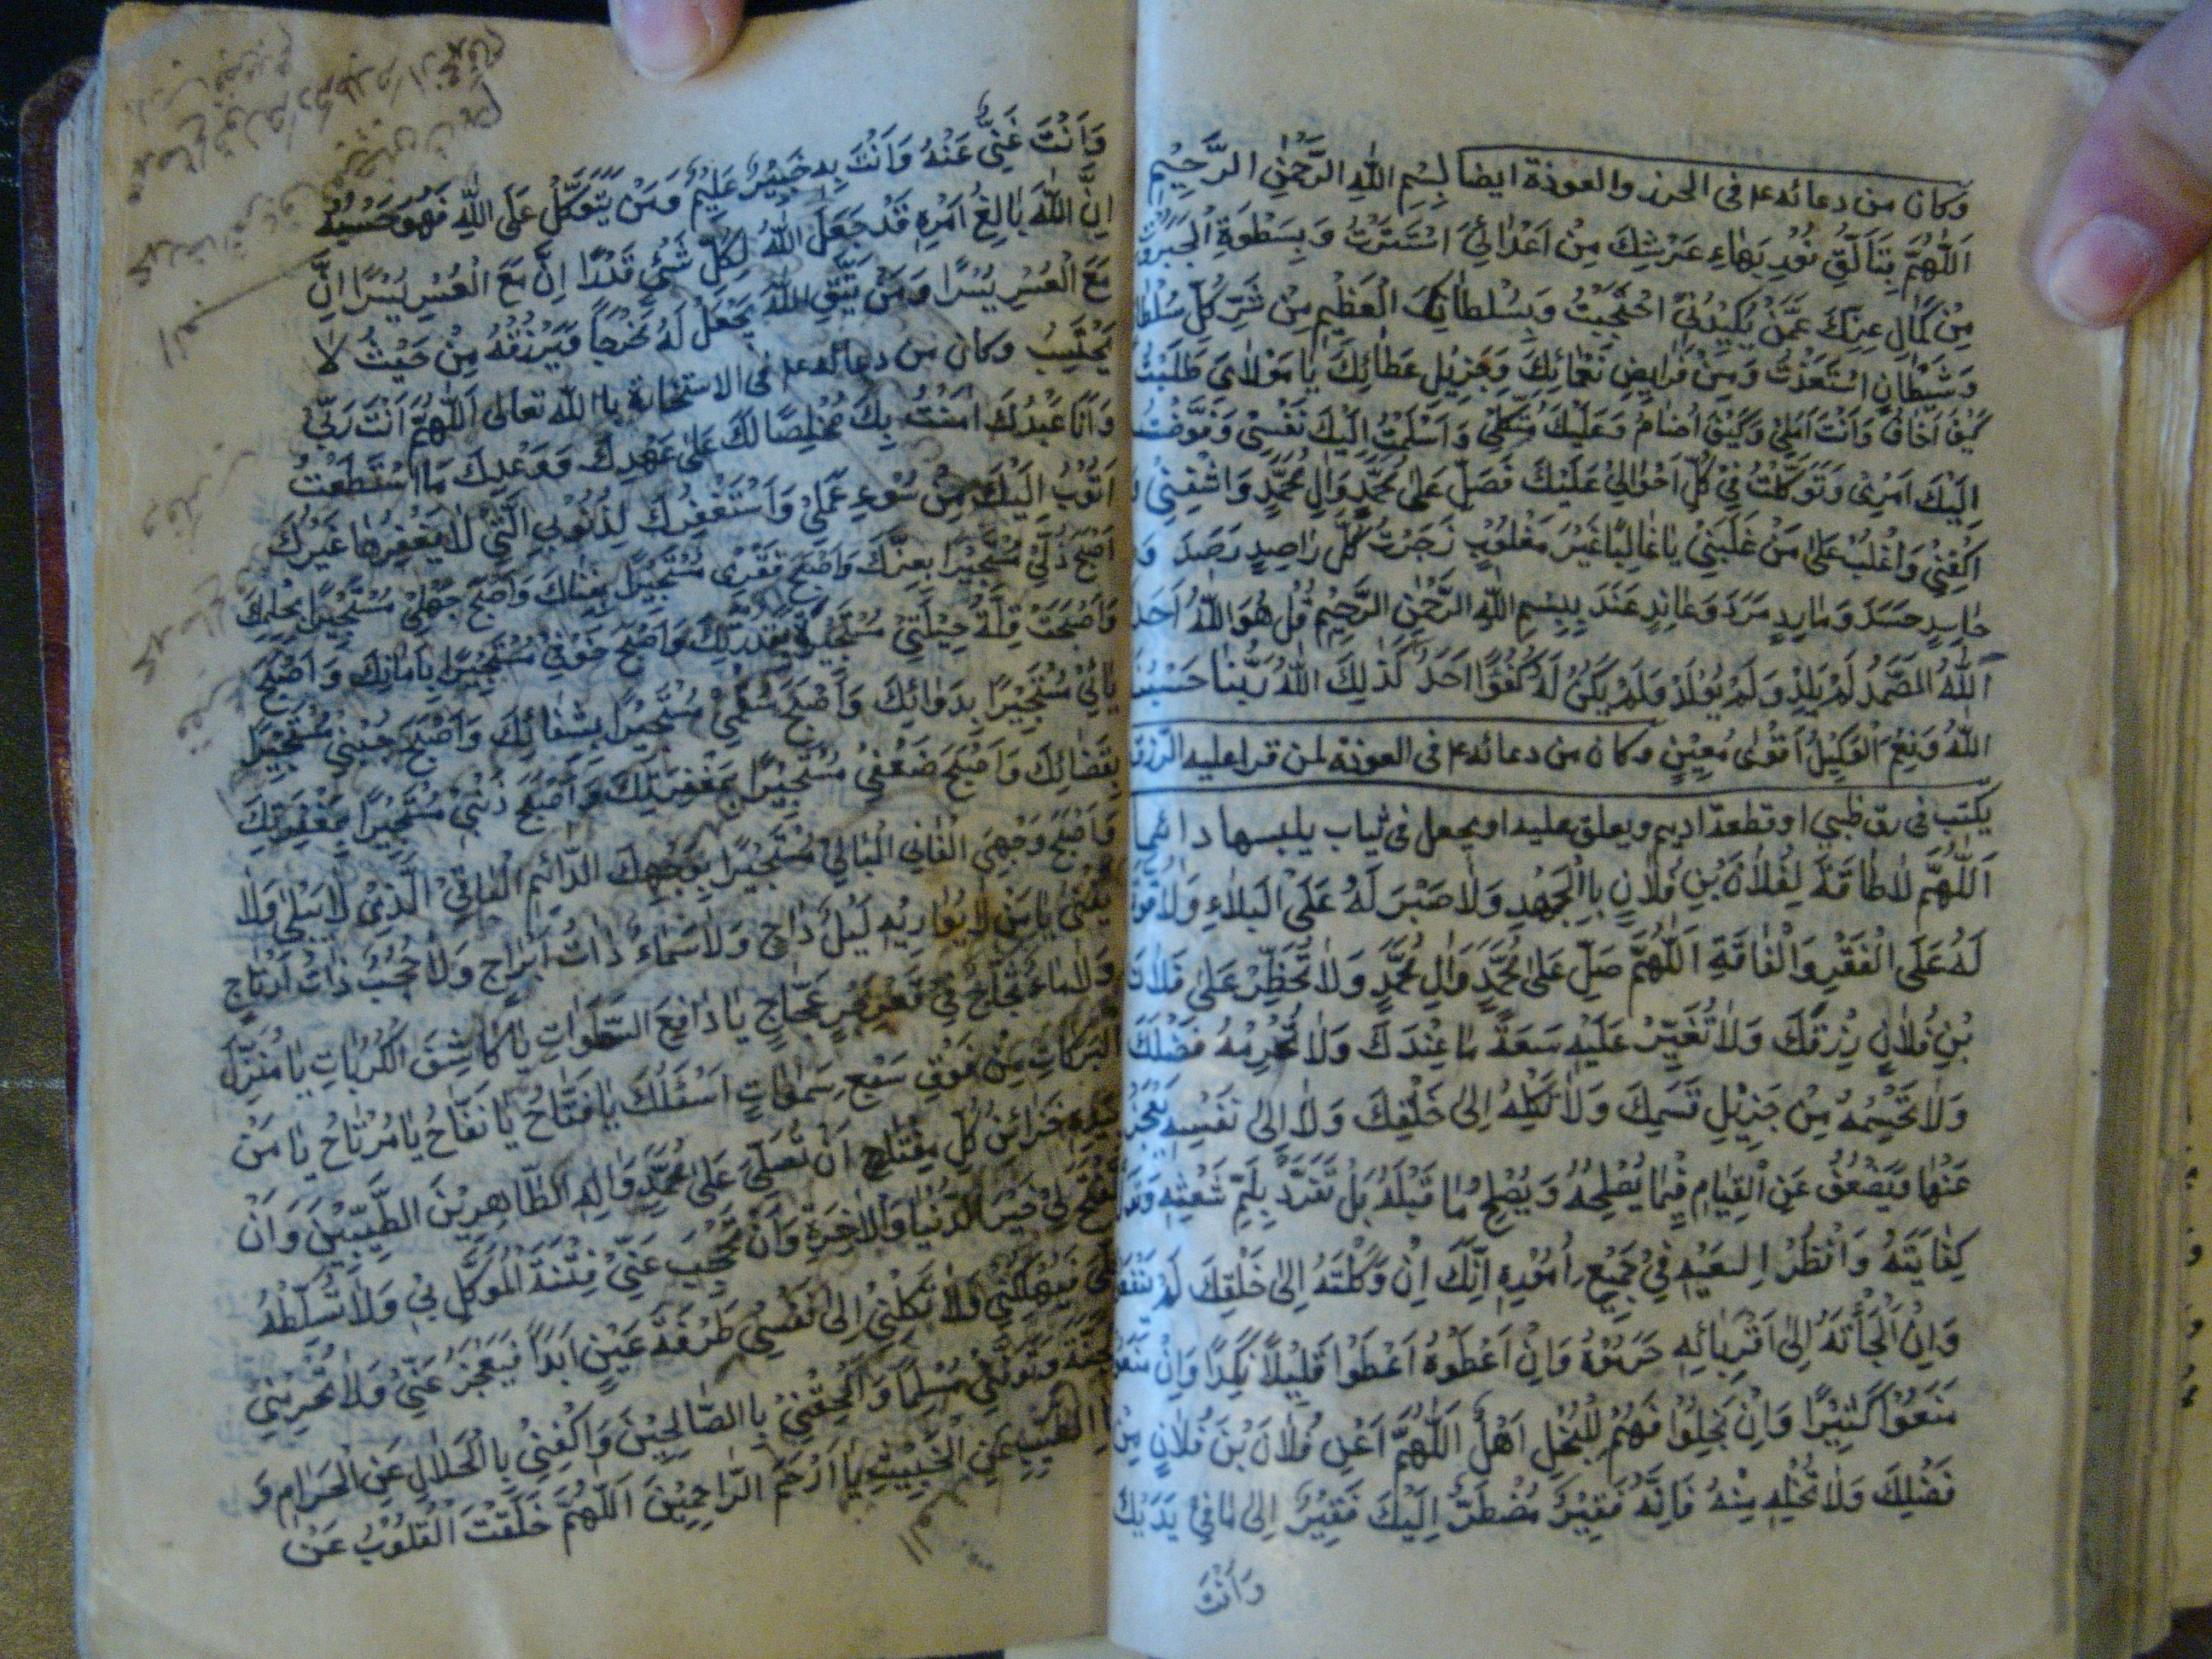 وكان من دعائه ع م فى الحرز والعوذة ايضا بِسْمِ اللهِ الرَّحْمٰنِ الرَّحِيْمِ
اَللّٰهُمَّ بِتَاَلُّقِ نُوْرِ بَهَاءِ عَرْشِكَ مِنْ اَعْدَائِيْ اسْتَتَرْتُ وَبِسَطْوَةِ الْجَبَرُوْتِ
مِنْ كَمَالِ عِزِّكَ عَمَّنْ يَكِيْدُنِيْ احْتَجَبْتُ وَبِسُلْطَانِكَ الْعَظِيْمِ مِنْ شَرِّ كُلِّ سُلْطَانٍ
وَشَيْطَانٍ اسْتَعَذْتُ وَمِنْ فَرَايِضِ نَعْمَائِكَ وَجَزِيْلِ عَطَائِكَ يَا مَوْلَايَ طَلَبْتُ
كَيْفَ اَخَافُ وَاَنْتَ اَمَلِيْ وَكَيْفَ اُضَامُ وَعَلَيْكَ مُتَّكَلِيْ وَاَسْلَمْتُ اِلَيْكَ نَفْسِيْ وَفَوَّضْتُ
اِلَيْكَ اَمْرِيْ وَتَوَكَّلْتُ فِيْ كُلِّ اَحْوَالِيْ عَلَيْكَ فَصَلِّ عَلٰى مُحَمَّدٍ وَاٰلِ مُحَمَّدٍ وَاشْفِنِيْ وَ
اكْفِنِيْ وَاغْلِبْ عَلٰى مَنْ غَلَبَنِيْ يَا غَالِبًا غَيْرَ مَغْلُوْبٍ زَجَرْتُ كُلَّ رَاصِدٍ رَصَدَ وَ
حَاسِدٍ حَسَدَ وَمَارِدٍ مَرَدَ وَعَانِدٍ عَنَدَ بِبِسْمِ اللهِ الرَّحْمٰنِ الرَّحِيْمِ قُلْ هُوَ اللهُ اَحَدٌ
اَللهُ الصَّمَدُ لَمْ يَلِدْ وَلَمْ يُوْلَدْ وَلَمْ يَكُنْ لَهُ كُفُوًا اَحَدٌ كَذٰلِكَ اللهُ رَبُّنَا حَسْبُنَا
اللهُ وَنِعْمَ الْوَكِيْلُ اَقْوٰى مُعِيْنٍ وكان من دعائه ع م فى العوذة لمن قتر عليه الرزق
يكتب فى رق ظبي او قطعة اديم ويعلق عليه او يجعل فى ثياب يلبسها دائما
اَللّٰهُمَّ لَا طَاقَةَ لِفُلَانِ بْنِ فُلَانٍ بِالْجَهْدِ وَلَا صَبْرَ لَهُ عَلَى الْبَلَاءِ وَلَا قُوَّةَ
لَهُ عَلَى الْفَقْرِ وَالْفَاقَةِ اَللّٰهُمَّ صَلِّ عَلٰى مُحَمَّدٍ وَاٰلِ مُحَمَّدٍ وَلَا تُحَظِّرْ عَلٰى فُلَانِ
بْنِ فُلَانٍ رِزْقَكَ وَلَا تُقَتِّرْ عَلَيْهِ سَعَةَ مَا عِنْدَكَ وَلَا تُحْرِمْهُ فَضْلَكَ
وَلَا تَحْسِمْهُ مِنْ جَزِيْلِ قِسَمِكَ وَلَا تَكِلْهُ اِلٰى خَلْقِكَ وَلَا اِلٰى نَفْسِهِ فَيَعْجِزَ
عَنْهَا فَيَضْعُفَ عَنِ الْقِيَامِ فِيْمَا يُصْلِحُهُ وَيُصْلِحُ مَا قِبَلَهُ بَلْ تَفَرَّدْ بِلَمِّ شَعْثِهِ
كِفَايَتَهُ وَانْظُرْ اِلَيْهِ فِيْ جَمِيْعِ اُمُوْرِهِ اِنَّكَ اِنْ وَكَلْتَهُ اِلٰى خَلْقِكَ لَمْ
وَاِنْ اَلْجَأْتَهُ اِلٰى اَقْرِبَائِهِ حَرَمُوْهُ وَاِنْ اَعْطَوْهُ اَعْطَوْا قَلِيْلًا نَكِدًا وَاِنْ مَنَعُوْا
مَنَعُوْا كَثِيْرًا وَاِنْ بَخِلُوْا فَهُمْ لِلْبُخْلِ اَهْلٌ اَللّٰهُمَّ اَغْنِ فُلَانَ بْنَ فُلَانٍ مِنْ
فَضْلِكَ وَلَا تُخْلِهِ مِنْهُ فَاِنَّهُ فَقِيْرٌ مُضْطَرٌّ اِلَيْكَ فَقِيْرٌ اِلٰى مَا فِيْ يَدَيْكَ
وَاَنْتَ
وَاَنْتَ غَنِيٌّ عَنْهُ وَاَنْتَ بِهِ خَبِيْرٌ عَلِيْمٌ وَمَنْ يَتَوَكَّلْ عَلَى اللهِ فَهُوَ حَسْبُهُ
اِنَّ اللهَ بَالِغُ اَمْرِهِ قَدْ جَعَلَ اللهُ لِكُلِّ شَيْءٍ قَدْرًا اِنَّ مَعَ الْعُسْرِ يُسْرًا اِنَّ
مَعَ الْعُسْرِ يُسْرًا وَمَنْ يَتَّقِ اللهَ يَجْعَلْ لَهُ مَخْرَجًا وَيَرْزُقْهُ مِنْ حَيْثُ لَا
يَحْتَسِبُ وكان من دعائه ع م فى الاستغاثة بالله تعالى اَللّٰهُمَّ اَنْتَ رَبِّيْ
وَاَنَا عَبْدُكَ اٰمَنْتُ بِكَ مُخْلِصًا لَكَ عَلٰى عَهْدِكَ وَوَعْدِكَ مَا اسْتَطَعْتُ
اَتُوْبُ اِلَيْكَ مِنْ سُوْءِ عَمَلِيْ وَاَسْتَغْفِرُكَ لِذُنُوْبِيَ الَّتِيْ لَا يَغْفِرُهَا غَيْرُكَ
اَصْبَحَ ذُلِّيْ مُسْتَجِيْرًا بِعِزَّتِكَ وَاَصْبَحَ فَقْرِيْ مُسْتَجِيْرًا بِغِنَاكَ وَاَصْبَحَ جَهْلِيْ مُسْتَجِيْرًا بِحِلْمِكَ
وَاَصْبَحَتْ قِلَّةُ حِيْلَتِيْ مُسْتَجِيْرَةً بِقُدْرَتِكَ وَاَصْبَحَ خَوْفِيْ مُسْتَجِيْرًا بِاَمَانِكَ وَاَصْبَحَ
دَائِيْ مُسْتَجِيْرًا بِدَوَائِكَ وَاَصْبَحَ سُقْمِيْ مُسْتَجِيْرًا بِشِفَائِكَ وَاَصْبَحَ مُسْتَجِيْرًا
بِقَضَائِكَ وَاَصْبَحَ ضَعْفِيْ مُسْتَجِيْرًا وَاَصْبَحَ ذَنْبِيْ مُسْتَجِيْرًا بِمَغْفِرَتِكَ
وَاَصْبَحَ وَجْهِيَ الْفَانِي الْبَالِيْ مُسْتَجِيْرًا بِوَجْهِكَ الدَّائِمِ الْبَاقِيْ الَّذِيْ لَا يَبْلٰى وَلَا
يَفْنٰى يَا مَنْ لَا يُوَارِيْهِ لَيْلٌ دَاجٍ وَلَا سَمَاءٌ ذَاتُ اَبْرَاجٍ وَلَا حُجُبٌ ذَاتُ اَرْتَاجٍ
وَلَا مَاءٌ ثَجَّاجٌ فِيْ قَعْرِ بَحْرٍ عَجَّاجٍ يَا دَافِعَ السَّطَوَاتِ يَا كَاشِفَ الْكُرُبَاتِ يَا مُنْزِلَ
الْبَرَكَاتِ مِنْ فَوْقِ سَبْعِ سَمٰوَاتٍ اَسْئَلُكَ يَا فَتَّاحُ يَا نَفَّاحُ يَا مُرْتَاحُ يَا مَنْ
بِيَدِهِ خَزَائِنُ كُلِّ مِفْتَاحٍ اَنْ تُصَلِّيَ عَلٰى مُحَمَّدٍ وَاٰلِهِ الطَّاهِرِيْنَ الطَّيِّبِيْنَ وَاَنْ
تَفْتَحَ لِيْ خَيْرَ الدُّنْيَا وَالْاٰخِرَةِ وَاَنْ تَحْجُبَ عَنِّيْ فِتْنَةَ الْمُوَكَّلِ بِيْ وَلَا تُسَلِّطْهُ
عَلَيَّ فَيُهْلِكَنِيْ وَلَا تَكِلْنِيْ اِلٰى نَفْسِيْ طَرْفَةَ عَيْنٍ اَبَدًا فَيَعْجِزَ عَنِّيْ وَلَا تَحْرِمْنِيْ
الْجَنَّةَ وَتَوَفَّنِيْ مُسْلِمًا وَاَلْحِقْنِيْ بِالصَّالِحِيْنَ وَاكْفِنِيْ بِالْحَلَالِ عَنِ الْحَرَامِ وَ
بِالطَّيِّبِ عَنِ الْخَبِيْثِ يَا اَرْحَمَ الرَّاحِمِيْنَ اَللّٰهُمَّ خَلَقْتَ الْقُلُوْبَ عَنْ